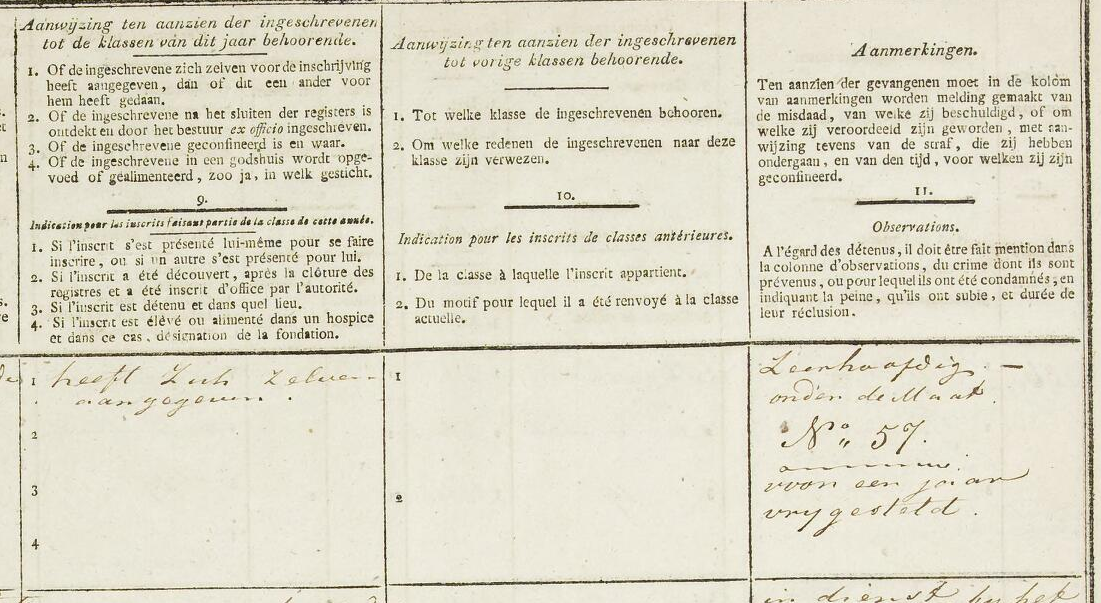 Aanwijzing ten aanzien der ingeschrevenen
tot de klassen van dit jaar behoorende.
1. Of de ingeschrevene zich zelven voor de inschrijving
heeft aangegeven, dan of dit een ander voor
hem heeft gedaan.
2. Of de ingeschrevene na het sluiten der registers is
ontdekt en door het bestuur ex officio ingeschreven.
3. Of de ingeschrevene geconfineerd is en waar.
4. Of de ingeschrevene in een godshuis wordt opge-
voed of gealimenteerd, zoo ja, in welk gesticht.
9.
Indication pour les inscrits faisant partie de la classe de cette année.
1. Si l'inscrit s'est présenté lui-même pour se faire
inscrire, ou si un autre s'est présenté pour lui.
2. Si l'inscrit a été découvert, après la clôture des
registres et a été inscrit d'office par l'autorité.
3. Si l'inscrit est détenu et dans quel lieu.
4. Si l'inscrit est élévé ou alimenté dans un hospice
et dans ce cas, désignation de la fondation.
1 heeft zich zelve
aangegeven.
2
3
4
Aanwijzing ten aanzien der ingeschrevenen
tot vorige klassen behoorende.
1. Tot welke klasse de ingeschrevenen behooren.
2. Om welke redenen de ingeschrevenen naar deze
klasse zijn verwezen.
10.
Indication pour les inscrits de classes antérieures.
1. De la classe à laquelle l'inscrit appartient.
2. Du motif pour lequel il a été renvoyé à la classe
actuelle.
1
2
Aanmerkingen.
Ten aanzien der gevangenen moet in de kolom
van aanmerkingen worden melding gemaakt van
de misdaad, van welke zij beschuldigd, of om
welke zij veroordeeld zijn geworden, met aan-
wijzing tevens van de straf, die zij hebben
ondergaan, en van den tijd, voor welken zij zijn
geconfineerd.
11.
Observations.
A l'égard des détenus, il doit être fait mention dans
la colonne d'observations, du crime dont ils sont
prévenus, ou pour lequel ils ont été condamnés, en
indiquant la peine, qu'ils ont subie, et durée de
leur réclusion.
Zeerhoofdig
onder de Maat.
No. 57.
voor een jaar
vrygesteld.
in dienst by het